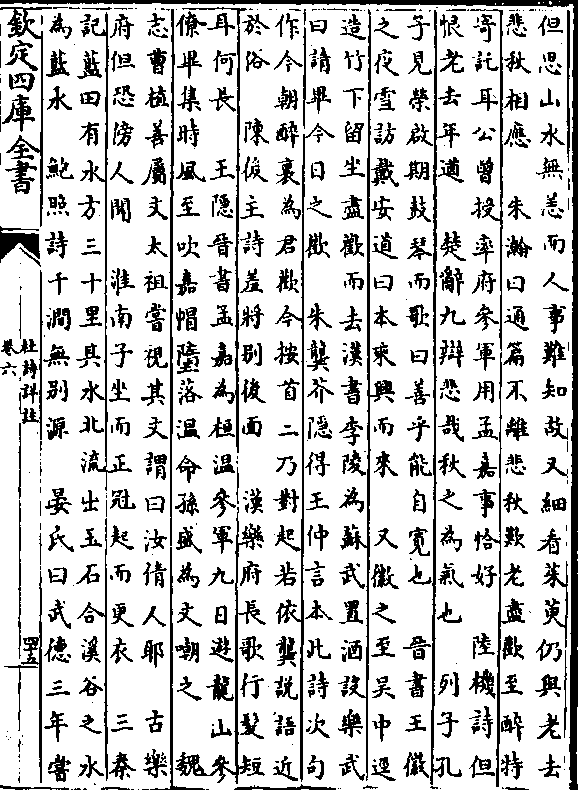 但思山水無恙而人事難知故又細看茱萸仍與老去
悲秋相應　朱瀚曰通篇不離悲秋歎老盡歡至醉特
寄託耳公曾授率府參軍用孟嘉事恰好　陸機詩但
恨老去年遒　楚辭九辯悲哉秋之為氣也　列子孔
子見榮啟期鼓琴而歌曰善乎能自寛也　晉書王徽
之夜雪訪戴安道曰本乗興而來　又徽之至吳中逕
造竹下留坐盡歡而去漢書李陵為蘇武置酒設樂武
曰請畢今日之歡　朱龔芥隱得王仲言本此詩次句
作今朝醉裏為君歡今按首二乃對起若依龔説語近
於俗　陳後主詩羞將别後面　漢樂府長歌行髮短
耳何長　王隱晉書孟嘉為桓温參軍九日遊龍山參
僚畢集時風至吹嘉帽墮落温命孫盛為文嘲之　魏
志曹植善屬文太祖嘗視其文謂曰汝倩人耶　古樂
府但恐傍人聞　淮南子坐而正冠起而更衣　三秦
記藍田有水方三十里其水北流出玉石合溪谷之水
為藍水　鮑照詩千澗無别源　晏氏曰武德三年嘗
欽定四庫全書
杜詩詳註
卷六
四十五